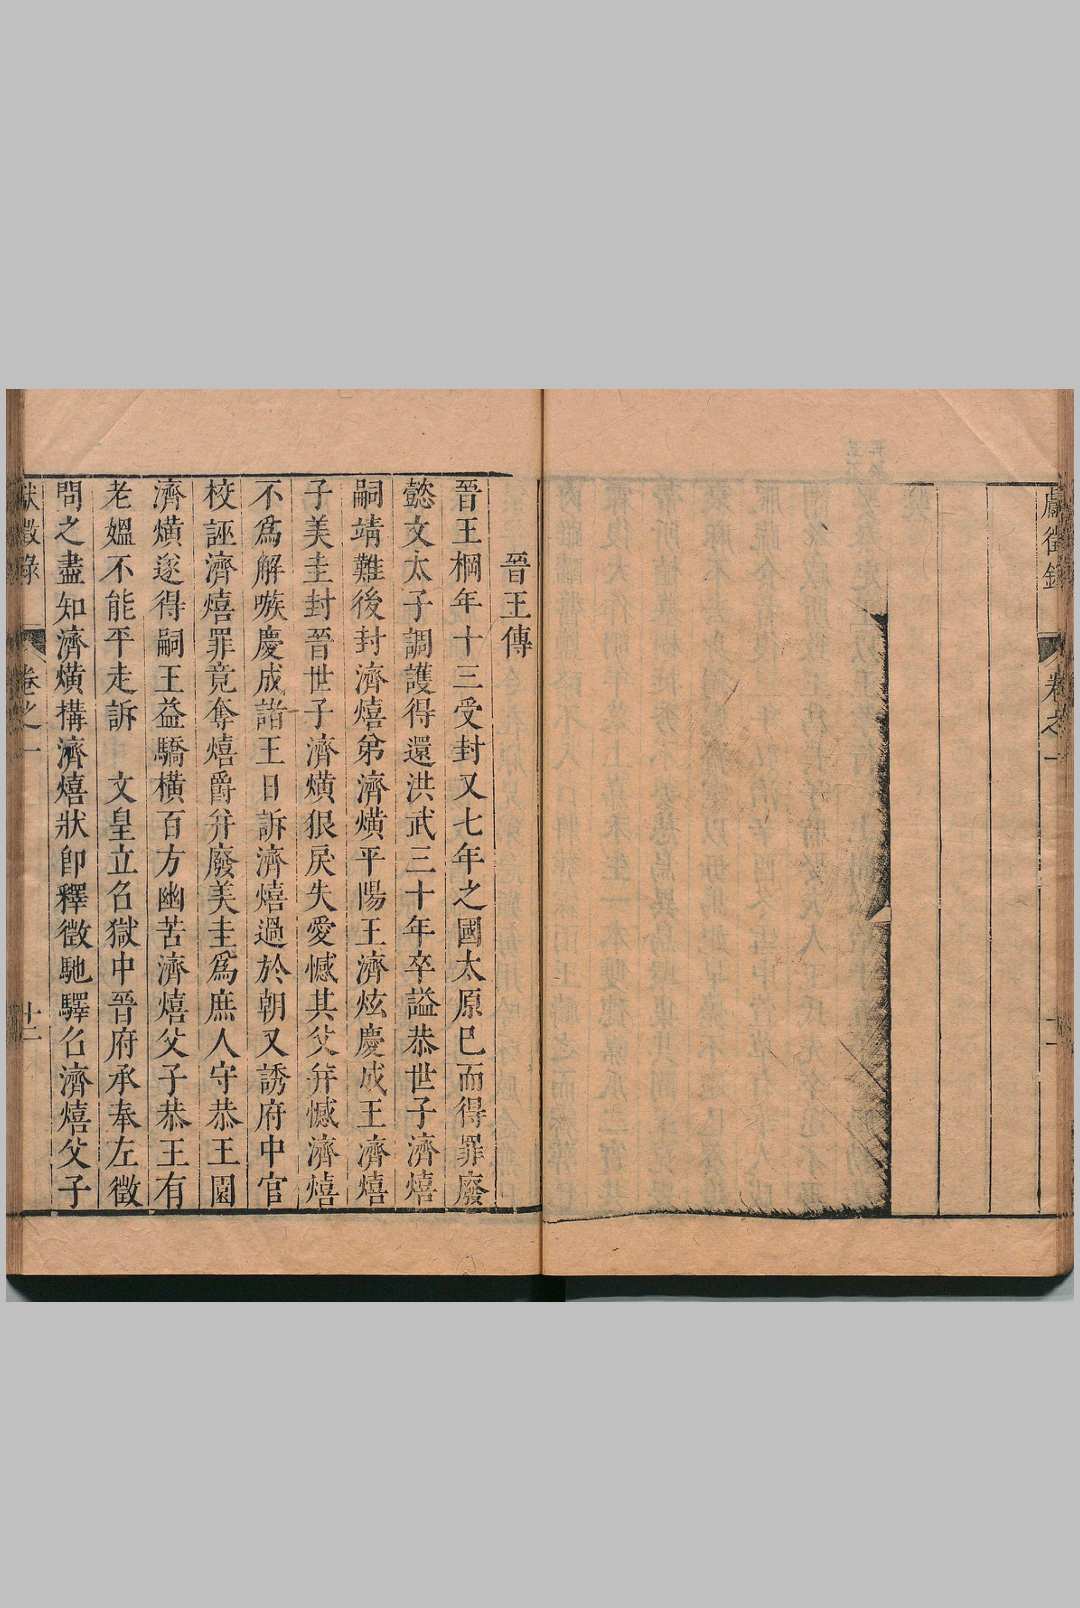 獻徵錄
卷之一
晉王傳
晉王棡年十三受封又七年之國太原已而得罪廢
懿文太子調護得還洪武三十年卒謚恭世子濟熺
嗣靖難後封濟熺弟濟熿平陽王濟炫慶成王濟熺
子美圭封晉世子濟熿狠戾失愛憾其父幷憾濟熺
不為解嗾慶成諸王日訴濟熺過於朝又誘府中官
校誣濟熺罪竟奪熺爵幷廢美圭為庶人守恭王園
濟熿遂得嗣王益驕橫百方幽苦濟熺父子恭王有
老媼不能平走訴 文皇立召獄中晉府承奉左徵
問之盡知濟熿構濟熺狀卽釋徵馳驛召濟熺父子
獻徵錄
卷之一
十二